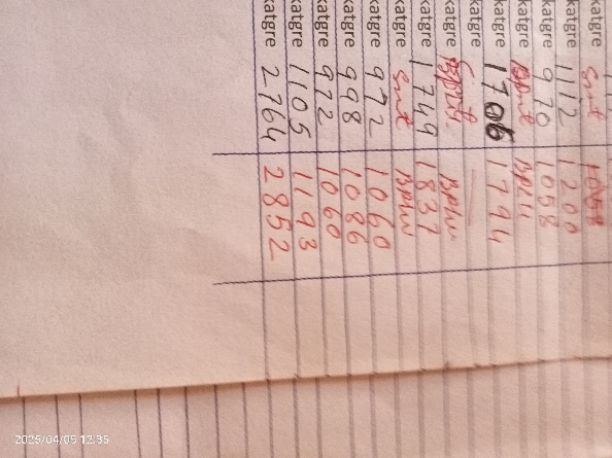 katgre
katgre 1112 1200
katgre 970 1058
katgre
katgre 1706 1794
katgre
katgre
katgre 1749 1837
katgre
katgre 972 1060
katgre 998 1086
katgre 972 1060
katgre 1105 1193
katgre 2764 2852
2025/04/05 12:35